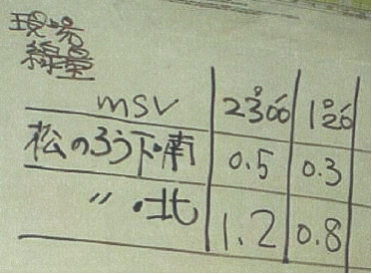 現場
線量
msv 23°00' 1°20'
松のろう下・南 0.5 0.3
〃・北 1.2 0.8